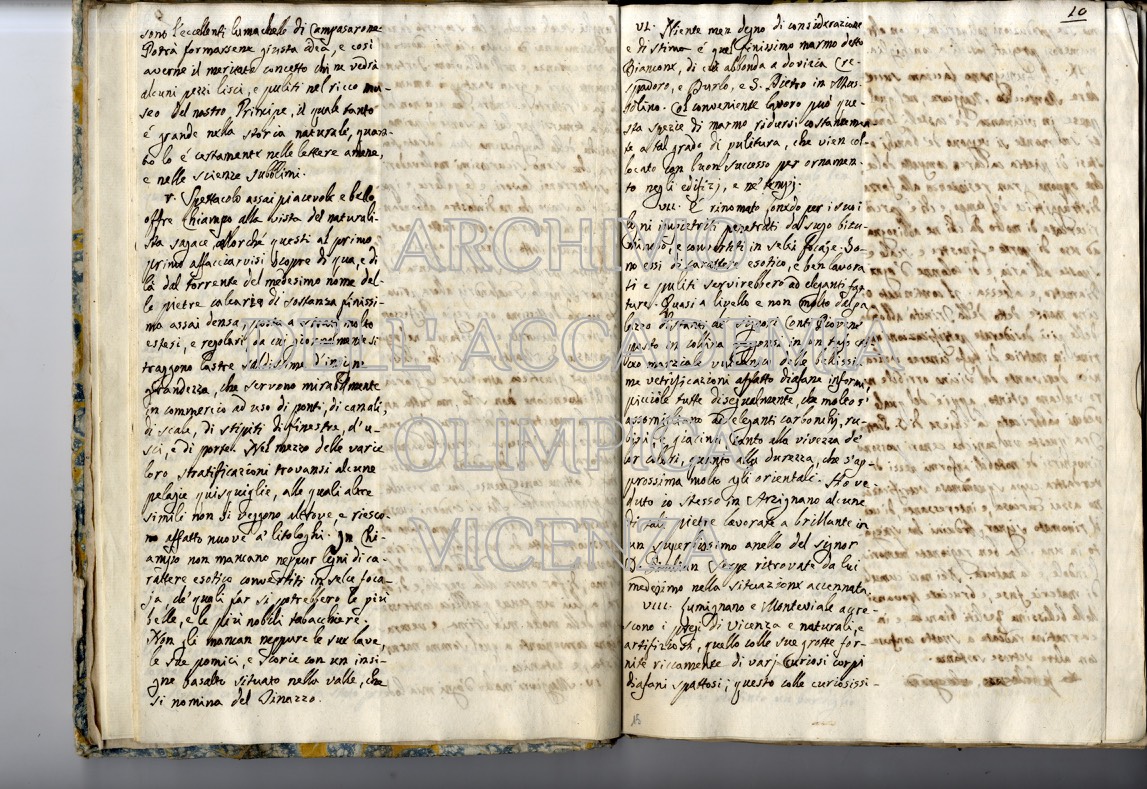 sono l'eccellenti lumachelle di Camposarone
Potrà formarsene giusta idea, e così
averne il meritato concetto chi ne vedrà
alcuni pezzi lisci, e puliti nel ricco mu-
seo del nostro Principe, il quale tanto
é grande nella storia naturale, quan-
to lo é certamente nelle lettere amene,
e nelle scienze sublimi.
V. Spettacolo assai piacevole e bello
offre Chiampo alla vista del naturali-
sta sagace, allorché questi al primo
primo affacciarvisi scopre di qua, e di
là dal torrente del medesimo nome del-
le pietre calcarie di sostanza finissi-
ma assai densa, a strati molto
estesi, e regolari da cui giornalmente si
traggono lastre saldissime d'insigne
grandezza, che servono mirabilmente
in commercio ad uso di ponti, di canali,
di scale, di stipiti di finestre, d'u-
sci, e di porte. Nel mezzo delle varie
loro stratificazioni trovansi alcune
pelagie quisquiglie, alle quali altre
simili non si veggono altrove, e riesco-
no affatto nuove a' litologhi. In Chi-
ampo non mancano neppur legni di ca-
rattere esotico convertiti in selce foca-
ja, de' quali far si potrebbero le più
belle, e le più nobili tabacchiere.
Non gli mancan neppure le sue lave,
le sue pomici, e scorie con un insi-
gne basalte situato nella valle, che
si nomina del Pinazzo.
10
VI. Niente men degno di considerazione
e di stima é quel finissimo marmo detto
Biancone, di cui abbonda a dovizia Cre-
spadoro, e Durlo, e S. Pietro in Mus-
solino. Col conveniente lavoro può que-
sta spezie di marmo ridursi costantemen-
te a tal grado di pulitura, che vien col-
locato con buon successo per ornamen-
to negli edifizj, e ne' tempj.
VII. É rinomato per i suoi
legni impietriti penetrati dal sugo bitu-
minoso, e convertiti in selce focaja. So-
no essi di carattere esotico, e ben lavora-
ti e puliti servirebbero ad eleganti fat-
ture. Quasi a livello e non molto dal pa-
lazzo distanti de' Signori Conti Piovene
questo in collina
marziale delle bellissi-
me vetrificazioni affatto diafane informi
picciole tutte disegualmente, che molto s'
assomigliano ad eleganti carbonchj, ru-
bini e giacinti tanto alla vivezza de'
lor colori, quanto alla durezza, che s'ap-
prossima molto agli orientali. Ho ve-
duto io stesso in Arzignano alcune
di tali pietre lavorate a brillante in
un superbissimo anello del signor
ritrovate da lui
medesimo nella situazione accennata.
VIII. Lumignano e Monteviale acre-
scono i pregi di Vicenza e naturali, e
artifiziosi, quello colle sue grotte for-
nite riccamente di varj curiosi corpi
diafani spattosi; questo colle curiosissi-
15
ARCHIVIO
DELL'ACCADEMIA
OLIMPICA
VICENZA